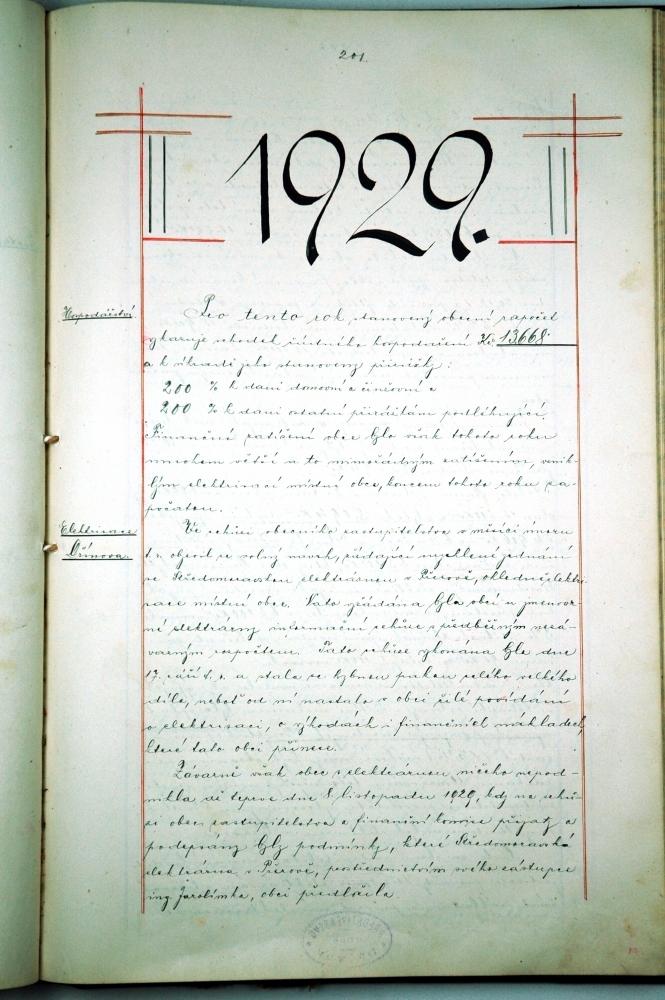 201.
1929.
Hospodářství
Pro tento rok, stanovený obecní rozpočet
vykazuje schodek účetního hospodaření Kč 13.668·
a k úhradě jeho stanoveny přirážky:
200 % k dani domovní a činžovní a
200 % k dani ostatní přirážkám podléhající.
Finanční zatížení obce bylo však tohoto roku
mnohem větší a to mimořádným zatížením, vznik-
lým elektrisací místní obce, koncem tohoto roku za-
počatou.
Elektrisace
Dřínova.
Ve schůzi obecního zastupitelstva v měsíci únoru
t. r. objevil se volný návrh, žádající zahájení jednání
se Středomoravskou elektrárnou v Přerově, ohledně elektri-
sace místní obce. Nato vyžádána byla obcí u jmenova-
né elektrárny informační schůze s předběžným nezá-
vazným rozpočtem. Tato schůze konána byla dne
17. září t. r. a stala se vzpruhou celého velkého
díla, neboť od ní nastalo v obci čilé povídání
o elektrisaci, o výhodách i finančních nákladech,
které tato obci přinese.
Závazně však obec s elektrárnou ničeho nepod-
nikla až teprve dne 8. listopadu 1929, kdy na schů-
zi obec. zastupitelstva a finanční komise přijaty a
podepsány byly podmínky, které Středomoravská
elektrárna v Přerově, prostřednictvím svého zástupce
ing. Jarolímka, obci předložila.